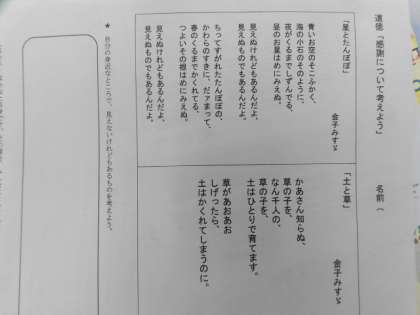 道徳「感謝について考えよう」
名前(
「星とたんぽぽ」
金子みすゞ
青いお空のそこふかく、
海の小石のそのように、
夜がくるまでしずんでる、
昼のお星はめにみえぬ。
見えぬけれどもあるんだよ、
見えぬものでもあるんだよ。
ちってすがれたたんぽぽの、
かわらのすきに、だァまって、
春のくるまでかくれてる、
つよいその根はめにみえぬ。
見えぬけれどもあるんだよ、
見えぬものでもあるんだよ。
「土と草」
金子みすゞ
かあさん知らぬ、
草の子を、
なん千人の、
草の子を、
土はひとりで育てます。
草があおあお
しげったら、
土はかくれてしまうのに。
★ 自分の身近なところで、見えないけれどもあるものを考えよう。